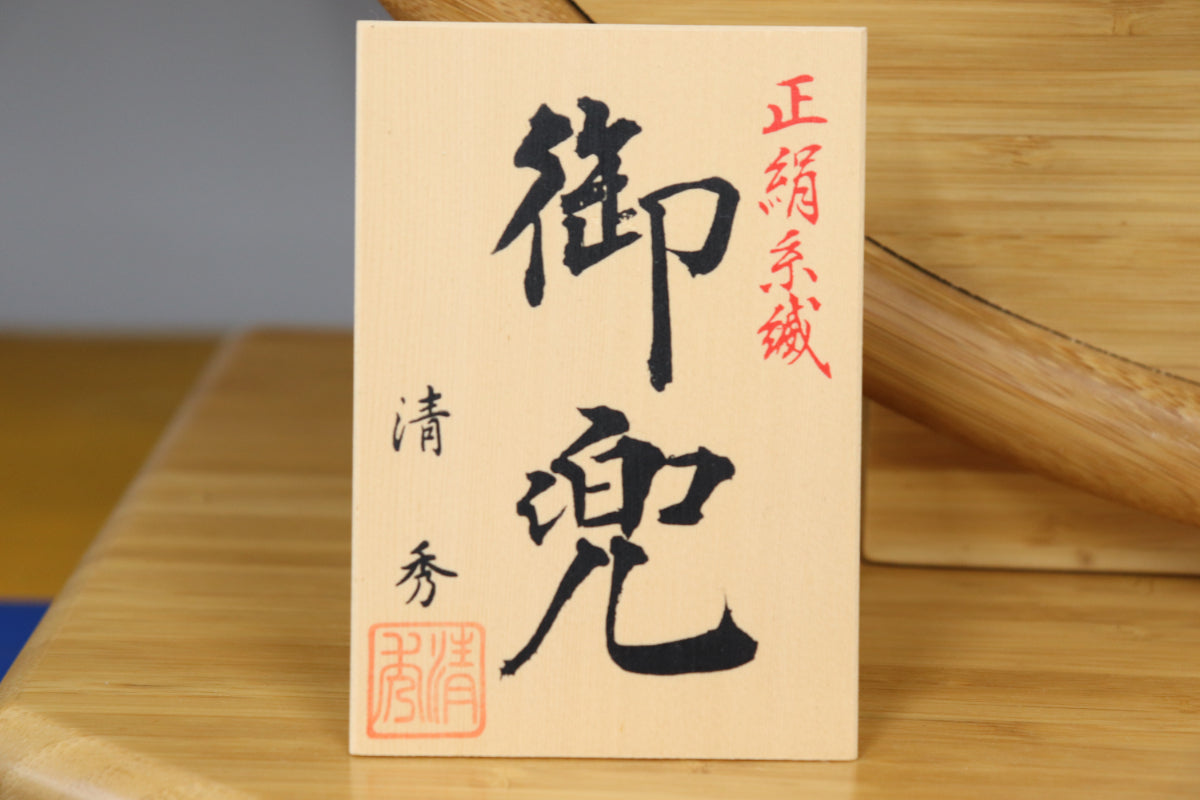 正絹糸縅
御兜
清秀
清秀